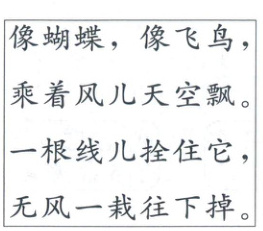 像蝴蝶，像飞鸟，
乘着风儿天空飘。
一根线儿拴住它，
无风一栽往下掉。